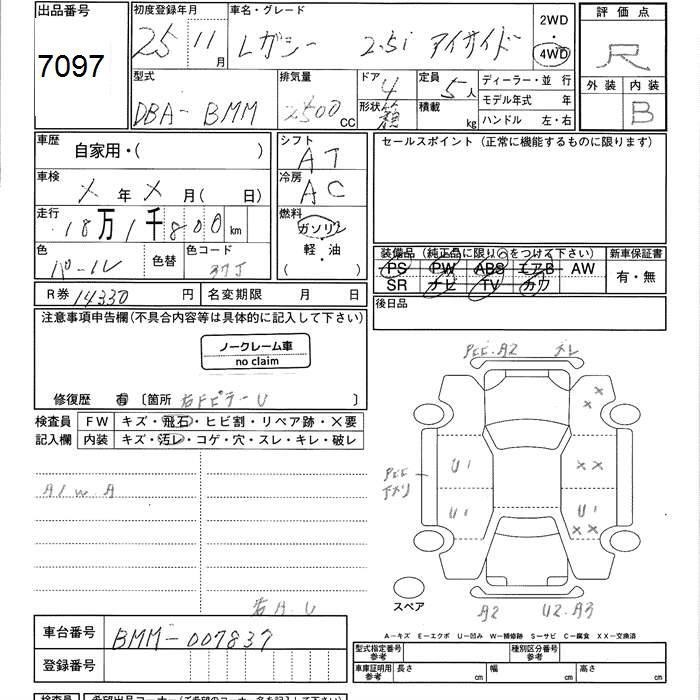 出品番号
7097
初度登録年月
25 11 月
車名・グレード
レガシー 2.5i アイサイド
2WD
4WD
評価点
R
外装 内装
B
型式
DBA-BMM
排気量
2500 CC
ドア
4
形状 箱
定員
5 人
積載
kg
ディーラー・並行
モデル年式 年
ハンドル 左・右
車歴
自家用・( )
シフト
AT
セールスポイント(正常に機能するものに限ります)
車検
X 年 X 月( 日)
冷房
AC
走行
18 万 1 千 800 km
燃料
ガソリン
軽・油
( )
色
パール
色替
色コード
37J
装備品(純正品に限り○をつける下さい)
新車保証書
PS PW ABS エアB AW
SR ナビ TV カワ
有・無
R券 14330 円
名変期限 月 日
後日品
注意事項申告欄(不具合内容等は具体的に記入して下さい)
ノークレーム車
no claim
修復歴 有 〔箇所 〕
検査員
記入欄
FW キズ・飛石・ヒビ割・リペア跡・X要
内装 キズ・汚レ・コゲ・穴・スレ・キレ・破レ
A/W.A
右A.U
PEE.A2
XX
U1
XX
U1
U1
XX
スペア
A2
U2.A3
A-キズ E-エクボ U-凹み W-補修跡 S-サビ C-腐食 XX-交換済
車台番号
BMM-007837
登録番号
型式指定番号
参考
種別区分番号
参考
車庫証明用
参考
長さ cm
幅 cm
高さ cm